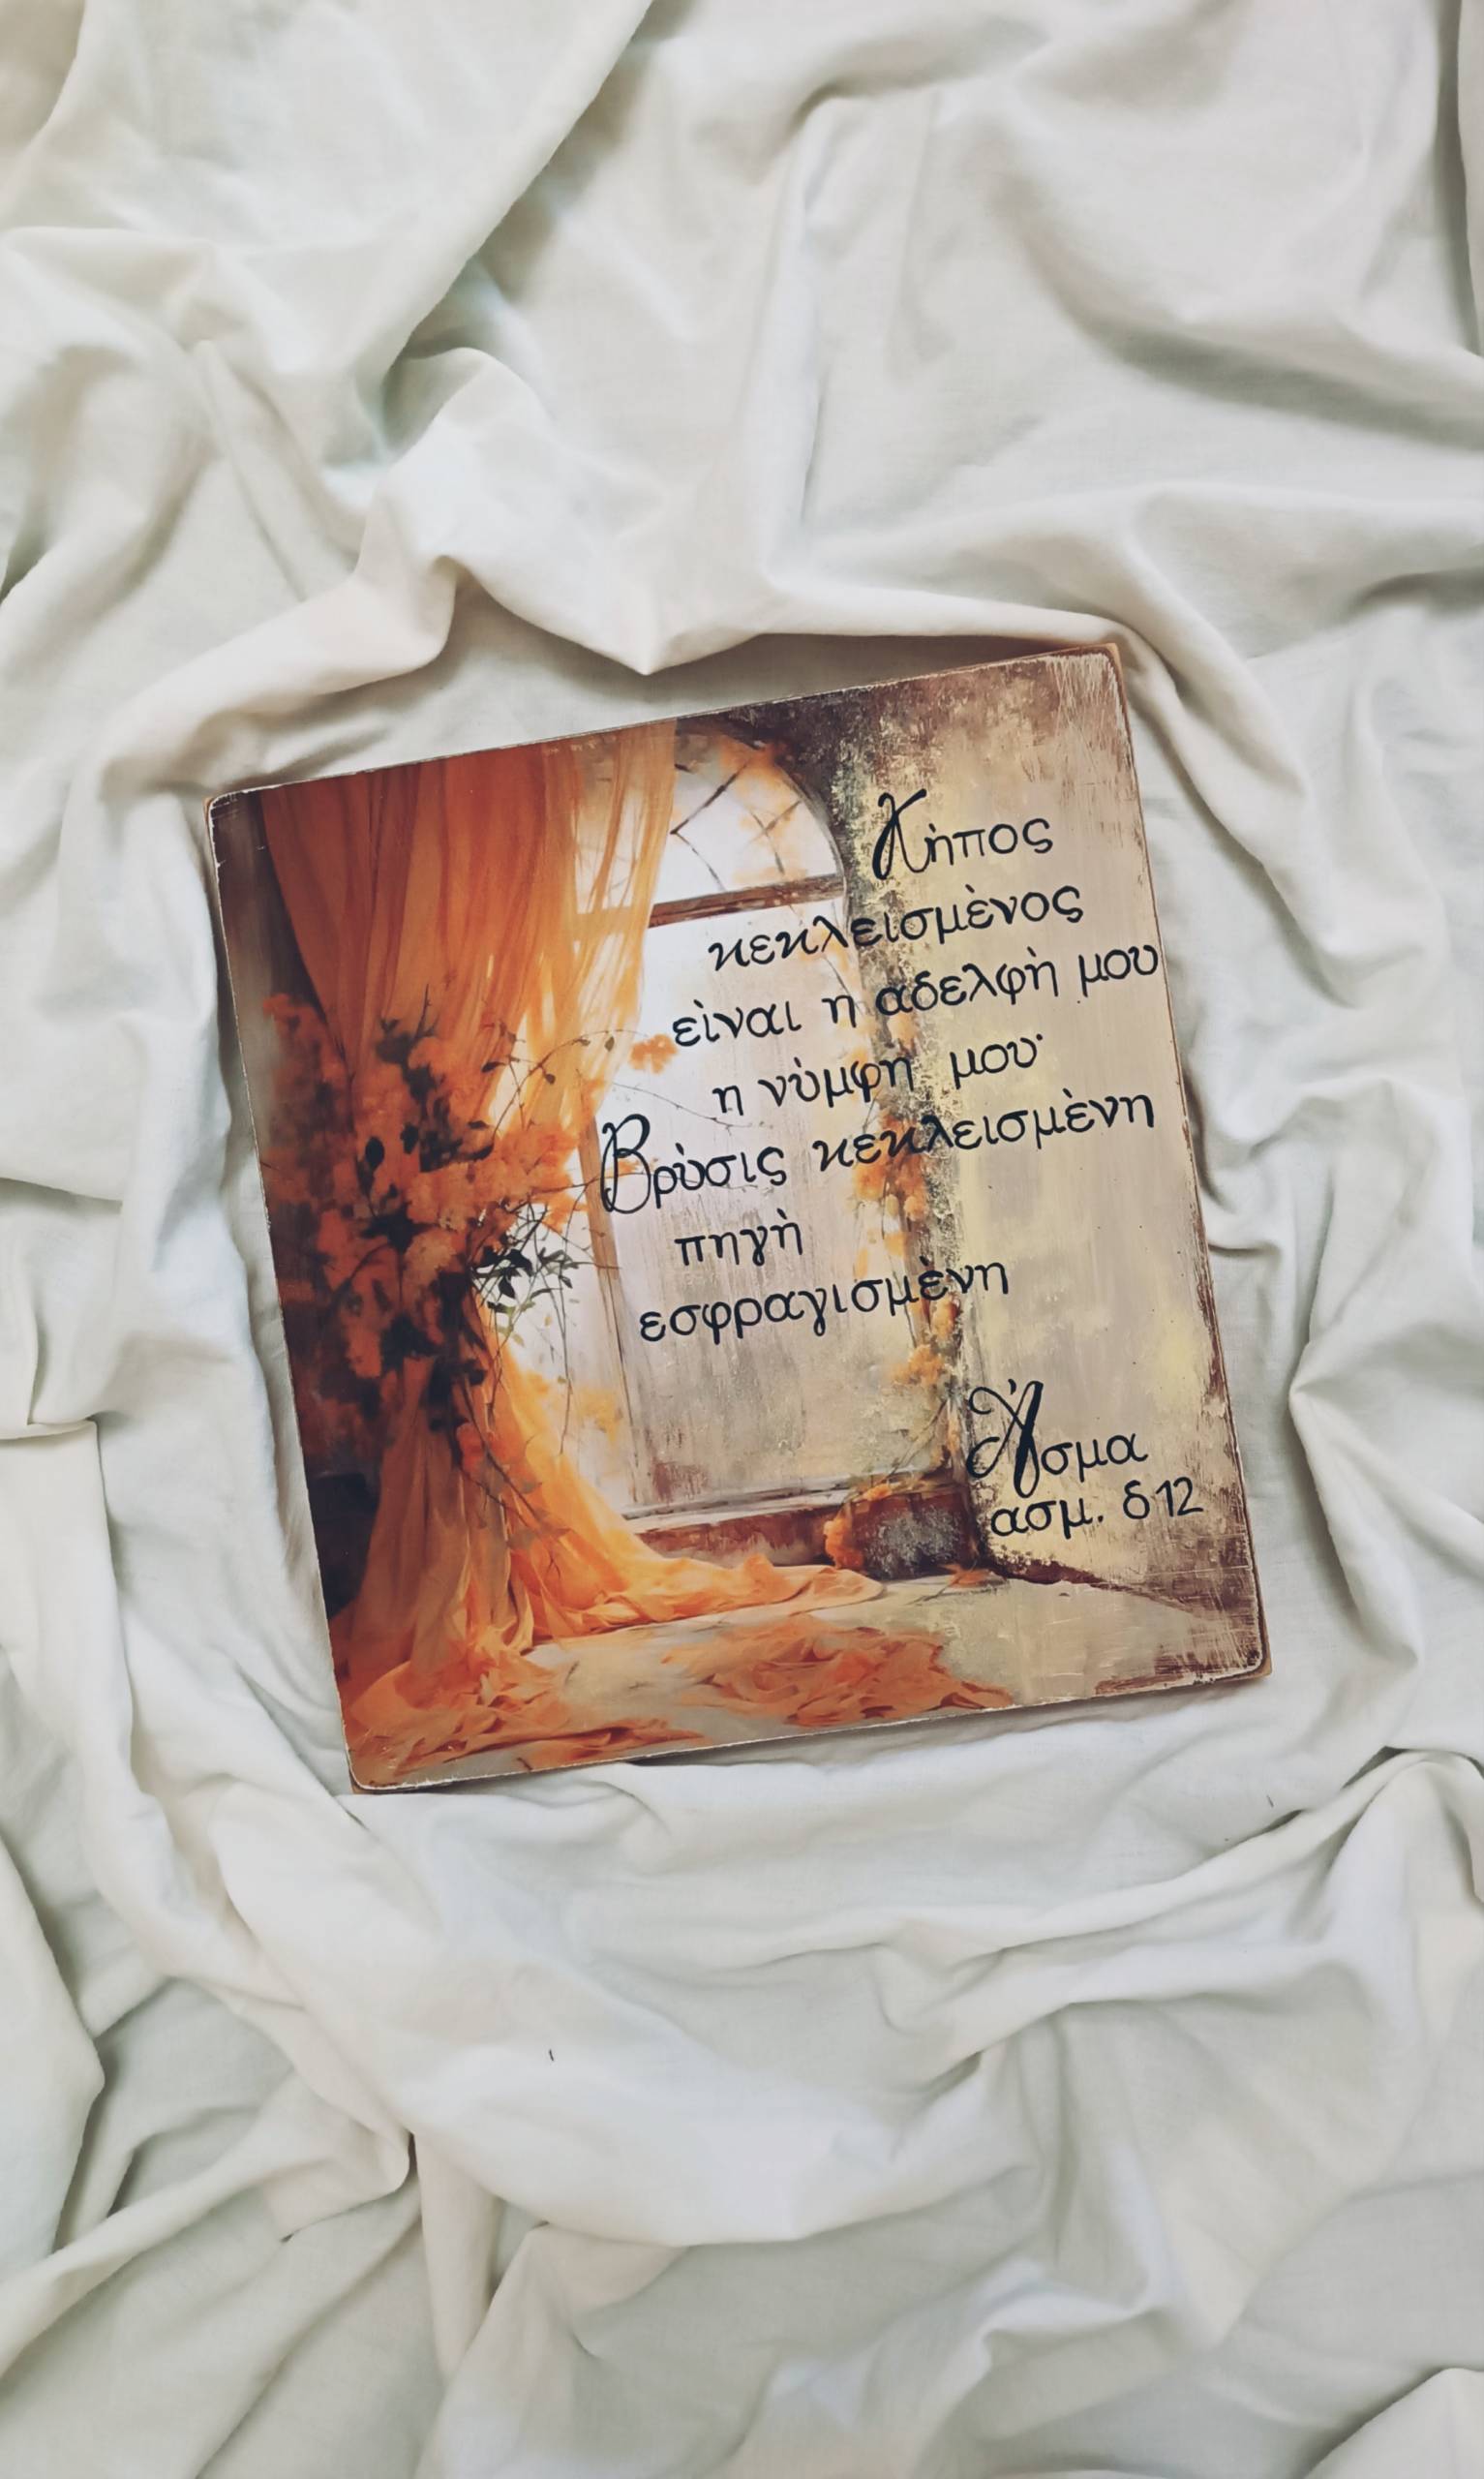 Κὴπος
κεκλεισμὲνος
εὶναι η αδελφὴ μου
η νὺμφη μου·
Βρὺσις κεκλεισμὲνη
πηγὴ
εσφραγισμὲνη
Ἂσμα
ασμ. δ 12